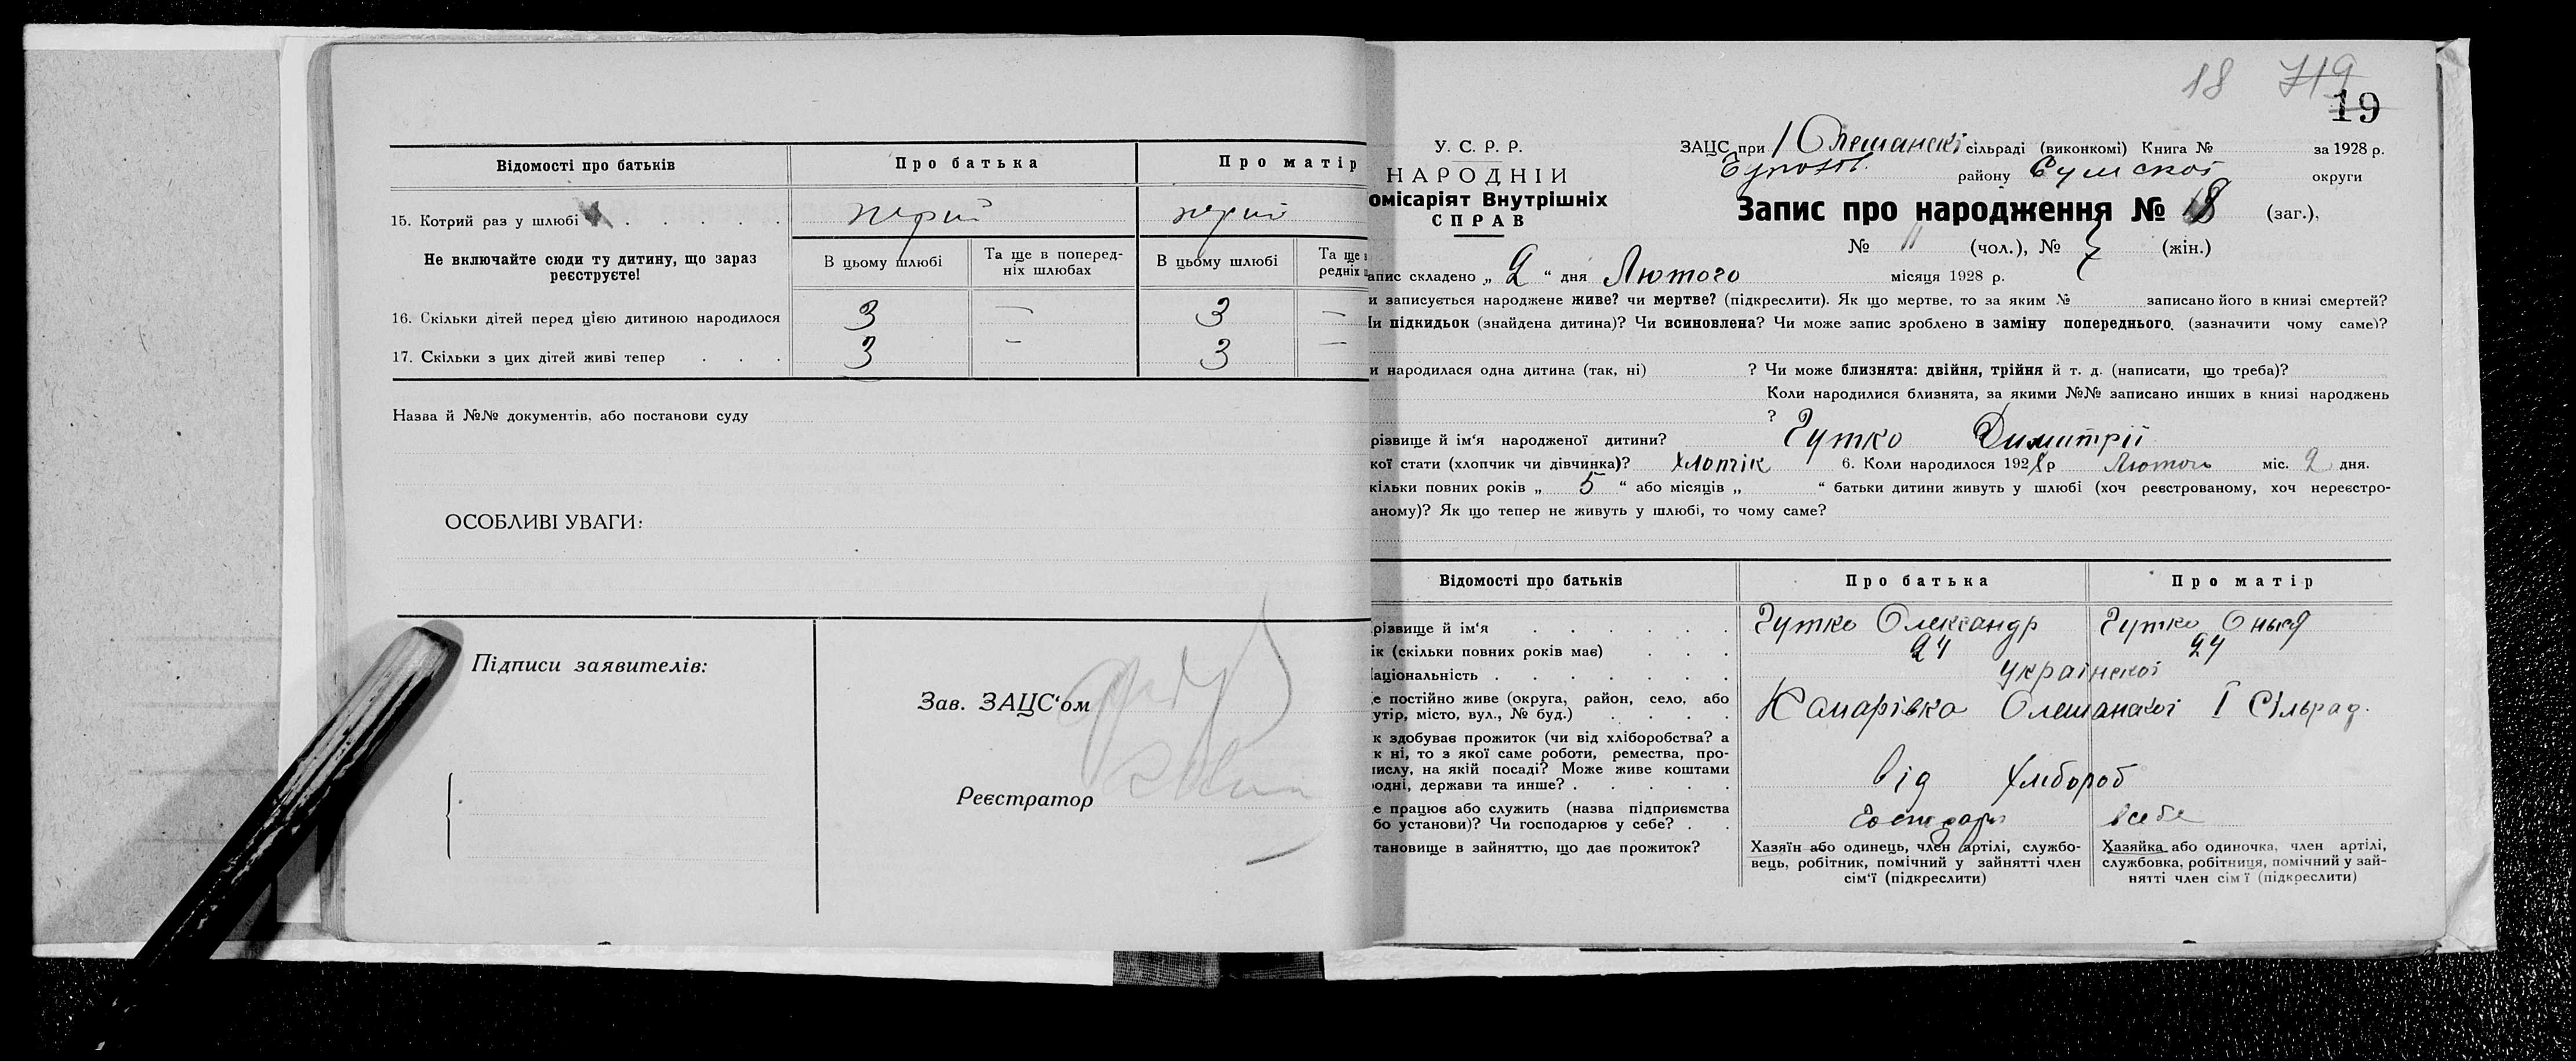 Відомості про батьків
Про батька
Про матір
15. Котрий раз у шлюбі . . . . .
перший
Не включайте сюди ту дитину, що зараз
реєструєте!
В цьому шлюбі
Та ще в поперед-
ніх шлюбах
В цьому шлюбі
Та ще в
редніх ш
16. Скільки дітей перед цією дитиною народилося
3 — 3 —
17. Скільки з цих дітей живі тепер . . .
3 — 3 —
Назва й №№ документів, або постанови суду
ОСОБЛИВІ УВАГИ:
Підписи заявителів:
Зав. ЗАЦС'ом
Реєстратор
18 719
19
У. С. Р. Р.
НАРОДНІЙ
омісаріят Внутрішніх
СПРАВ
ЗАЦС при І Олешанскі сільраді (виконкомі) Книга № за 1928 р.
району Сумскої округи
Запис про народження № 18 (заг.),
№ 11 (чол.), № 7 (жін.)
апис складено „ 2 “ дня Лютого місяця 1928 р.
и записується народжене живе? чи мертве? (підкреслити). Як що мертве, то за яким № записано його в книзі смертей?
и підкидьок (знайдена дитина)? Чи всиновлена? Чи може запис зроблено в заміну попереднього. (зазначити чому саме)?
и народилася одна дитина (так, ні) ? Чи може близнята: двійня, трійня й т. д. (написати, що треба)?
Коли народилися близнята, за якими №№ записано инших в книзі народжень
?
різвище й ім'я народженої дитини? Гутко Димитрій
кої стати (хлопчик чи дівчинка)? хлопчік 6. Коли народилося 1928 р Лютого міс. 2 дня.
кільки повних років „ 5 “ або місяців „ “ батьки дитини живуть у шлюбі (хоч реєстрованому, хоч нереєстро-
аному)? Як що тепер не живуть у шлюбі, то чому саме?
Відомості про батьків
Про батька
Про матір
різвище й ім'я . . . . . .
Гутко Олександр
Гутко
ік (скільки повних років має) . . .
24
24
аціональність . . . . . . .
українскої
е постійно живе (округа, район, село, або
утір, місто, вул., № буд.) . . . .
Комарівка Олешанскої І Сільрад.
к здобуває прожиток (чи від хліборобства? а
к ні, то з якої саме роботи, ремества, про-
мислу, на якій посаді? Може живе коштами
одні, держави та инше? . . . . .
від хлібороб
е працює або служить (назва підприємства
бо установи)? Чи господарює у себе? . .
всебе
тановище в зайняттю, що дає прожиток?
Хазяїн або одинець, член артілі, службо-
вець, робітник, помічний у зайнятті член
сім'ї (підкреслити)
Хазяйка або одиночка, член артілі,
службовка, робітниця, помічний у зай-
нятті член сім'ї (підкреслити)